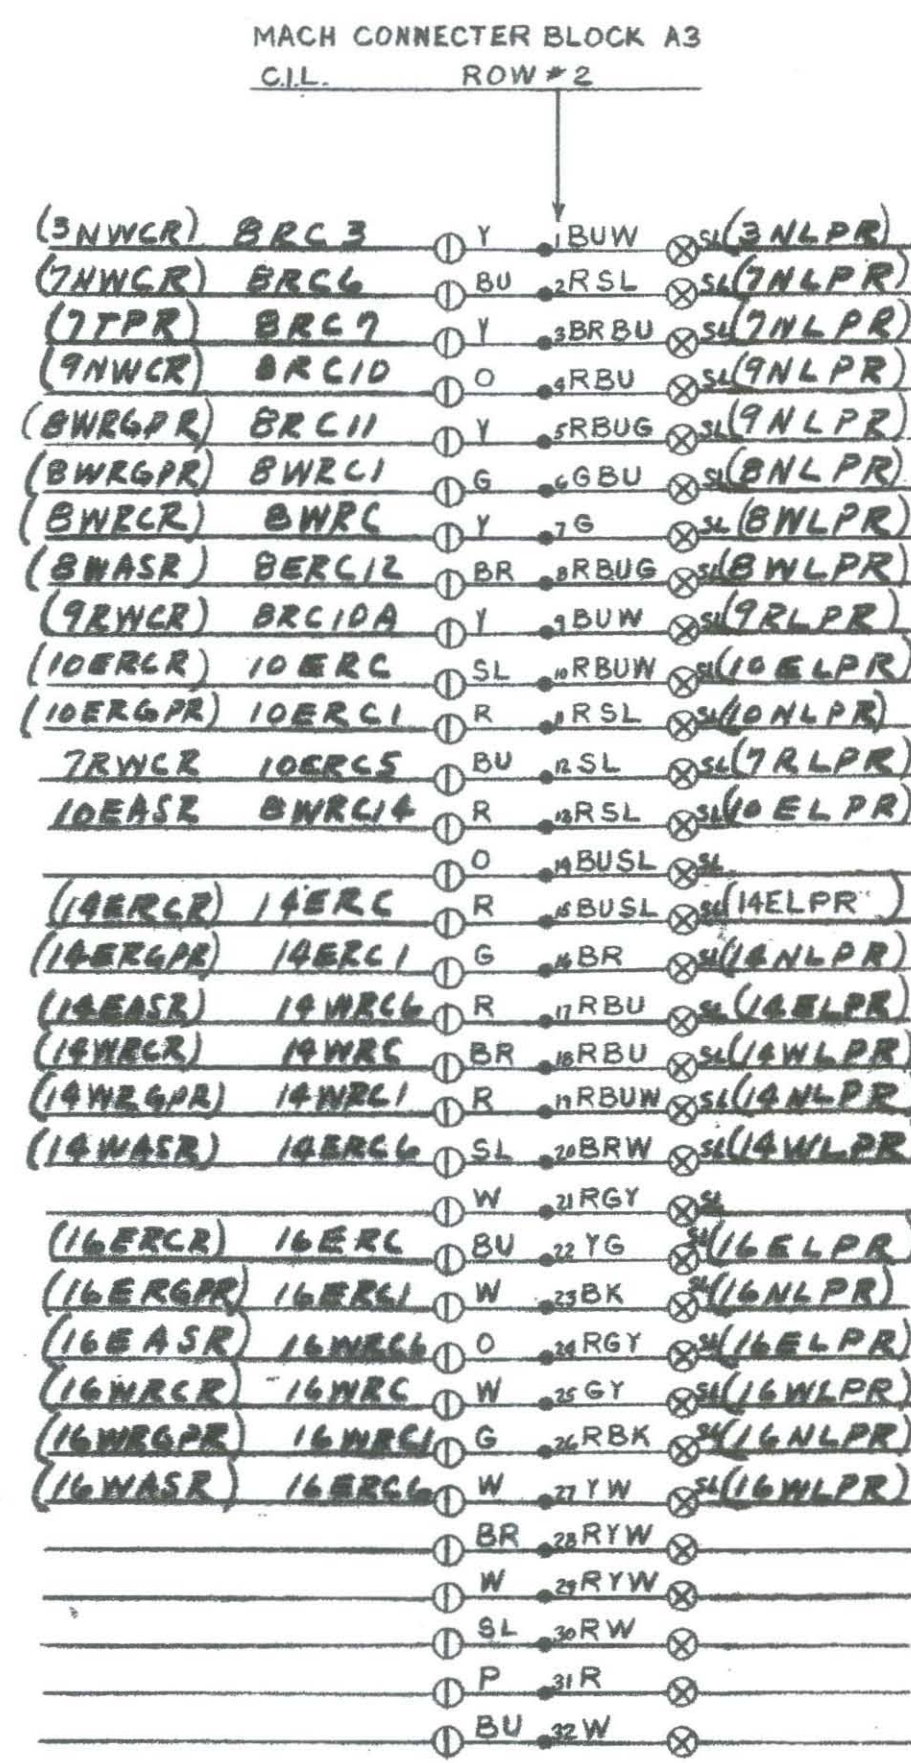 MACH CONNECTER BLOCK A3
C.I.L. ROW #2
(3NWCR) 8RC3 Y 1 BUW SL (3NLPR)
(7NWCR) 8RC6 BU 2 RSL SL (7NLPR)
(7TPR) 8RC7 Y 3 BRBU SL (7NLPR)
(9NWCR) 8RC10 O 4 RBU SL (9NLPR)
(8WRGPR) 8RC11 Y 5 RBUG SL (9NLPR)
(8WRGPR) 8WRC1 G 6 GBU SL (8NLPR)
(8WRCR) 8WRC Y 7 G SL (8WLPR)
(8WASR) 8ERC12 BR 8 RBUG SL (8WLPR)
(9RWCR) 8RC10A Y 9 BUW SL (9RLPR)
(10ERCR) 10ERC SL 10 RBUW SL (10ELPR)
(10ERGPR) 10ERC1 R 11 RSL SL (10NLPR)
7RWCR 10ERC5 BU 12 SL SL (7RLPR)
10EASR 8WRC14 R 13 RSL SL (10ELPR)
O 14 BUSL SL
(14ERCR) 14ERC R 15 BUSL SL (14ELPR)
(14ERGPR) 14ERC1 G 16 BR SL (14NLPR)
(14EASR) 14WRC6 R 17 RBU SL (14ELPR)
(14WRCR) 14WRC BR 18 RBU SL (14WLPR)
(14WRGPR) 14WRC1 R 19 RBUW SL (14NLPR
(14WASR) 14ERC6 SL 20 BRW SL (14WLPR
W 21 RGY SL
(16ERCR) 16ERC BU 22 YG SL (16ELPR)
(16ERGPR) 16ERC1 W 23 BK SL (16NLPR)
(16EASR) 16WRC6 O 24 RGY SL (16ELPR)
(16WRCR) 16WRC W 25 GY SL (16WLPR)
(16WRGPR) 16WRC1 G 26 RBK SL (16NLPR)
(16WASR) 16ERC6 W 27 YW SL (16WLPR)
BR 28 RYW
W 29 RYW
SL 30 RW
P 31 R
BU 32 W